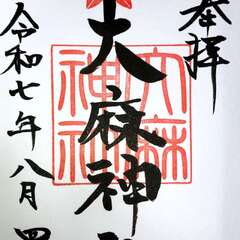 奉拝
大麻神
大麻
神
令和七年八月四